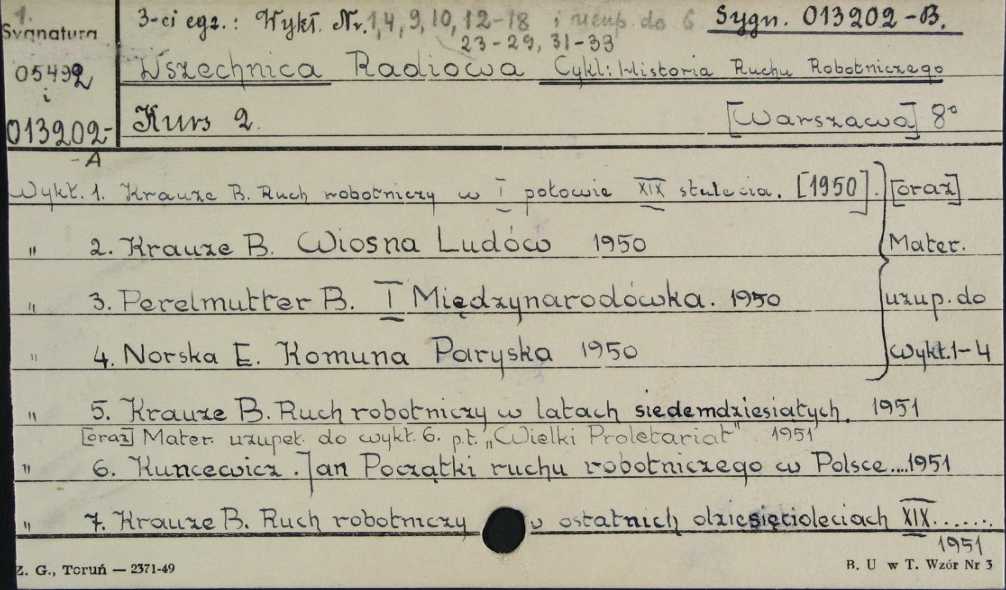 1. 3-ci egz.: Wykł. Nr. 1, 4, 9, 10, 12-18 i uzup. do 6 Sygn. 013202-B.
Sygnatura 23-29, 31-33
05492 Wszechnica Radiowa Cykl: Historia Ruchu Robotniczego
i
013202- Kurs 2. [Warszawa] 8°
-A
Wykł. 1. Krauze B. Ruch robotniczy w I połowie XIX stulecia. [1950]. [oraz]
" 2. Krauze B. Wiosna Ludów 1950 Mater.
" 3. Perelmutter B. I Międzynarodówka. 1950 uzup. do
" 4. Norska E. Komuna Paryska 1950 wykł. 1-4
" 5. Krauze B. Ruch robotniczy w latach siedemdziesiątych. 1951
[oraz] Mater. uzupeł. do wykł. 6. p.t. „Wielki Proletariat" 1951
" 6. Kuncewicz Jan Początki ruchu robotniczego w Polsce....1951
" 7. Krauze B. Ruch robotniczy w ostatnich dziesięcioleciach XIX.......
1951
Z. G., Toruń — 2371-49 B. U w T. Wzór Nr 3